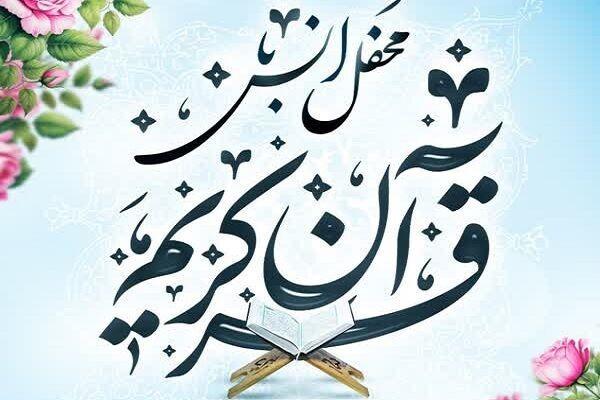 محفل انس با
قرآن کریم